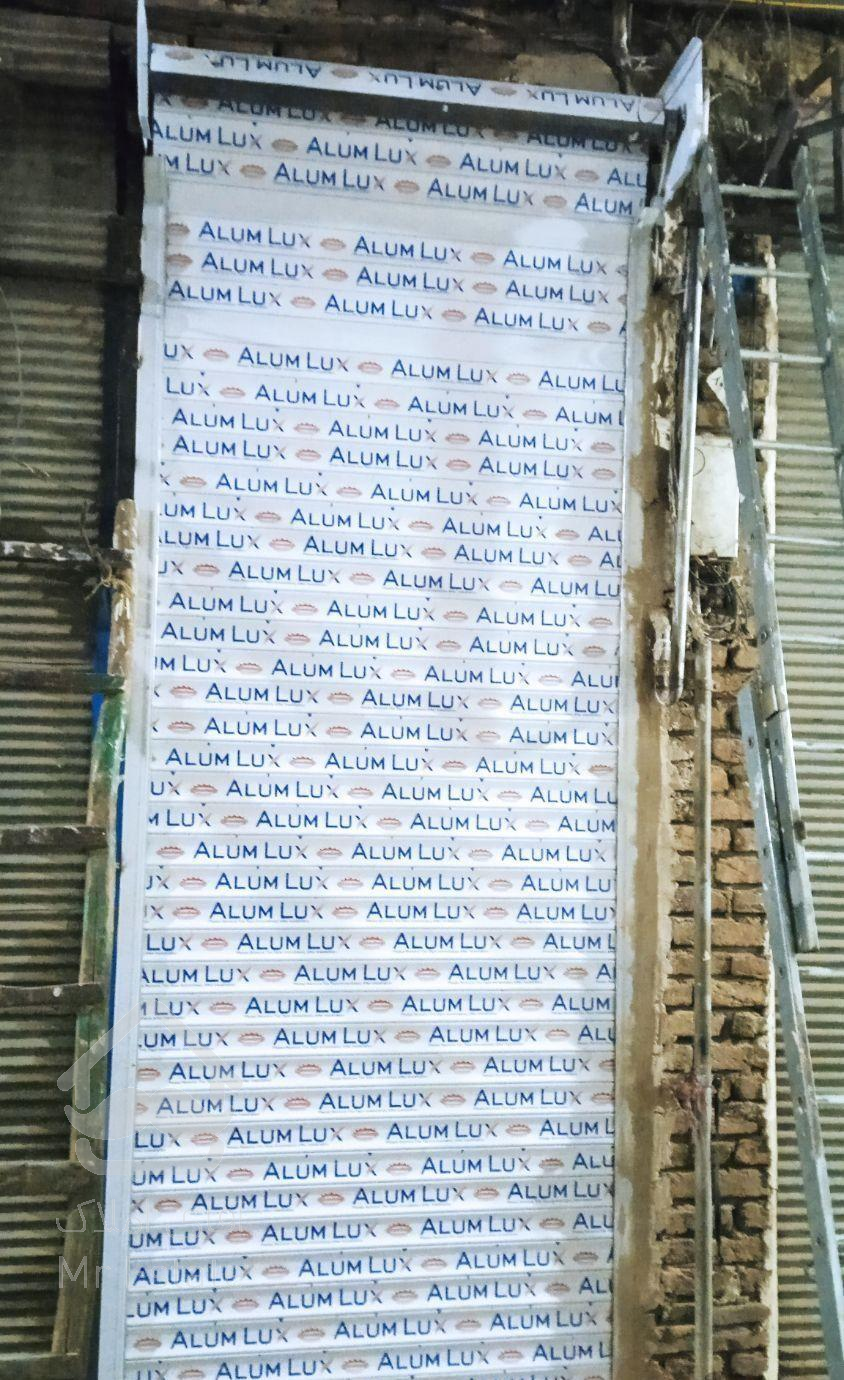 ALUM LUX ALUM LUX ALUM LUX ALUM LUX
ALUM LUX ALUM LUX ALUM LUX
ALUM LUX ALUM LUX ALUM LUX ALU
M LUX ALUM LUX ALUM LUX ALUM
ALUM LUX ALUM LUX ALUM LUX
ALUM LUX ALUM LUX ALUM LUX
ALUM LUX ALUM LUX ALUM LUX
UX ALUM LUX ALUM LUX ALUM LU
LUX ALUM LUX ALUM LUX ALUM L
ALUM LUX ALUM LUX ALUM LUX
ALUM LUX ALUM LUX ALUM LUX
X ALUM LUX ALUM LUX ALUM LUX
UM LUX ALUM LUX ALUM LUX ALU
ALUM LUX ALUM LUX ALUM LUX AL
UX ALUM LUX ALUM LUX ALUM LU
ALUM LUX ALUM LUX ALUM LUX
ALUM LUX ALUM LUX ALUM LUX
UM LUX ALUM LUX ALUM LUX ALU
X ALUM LUX ALUM LUX ALUM LUX
ALUM LUX ALUM LUX ALUM LUX
ALUM LUX ALUM LUX ALUM LUX
UX ALUM LUX ALUM LUX ALUM LU
M LUX ALUM LUX ALUM LUX ALUM
ALUM LUX ALUM LUX ALUM LUX
UX ALUM LUX ALUM LUX ALUM LU
UX ALUM LUX ALUM LUX ALUM LUX
LUX ALUM LUX ALUM LUX ALUM L
ALUM LUX ALUM LUX ALUM LUX A
LUX ALUM LUX ALUM LUX ALUM
UM LUX ALUM LUX ALUM LUX ALU
ALUM LUX ALUM LUX ALUM LUX
ALUM LUX ALUM LUX ALUM LUX
LUX ALUM LUX ALUM LUX ALUM L
UM LUX ALUM LUX ALUM LUX ALU
X ALUM LUX ALUM LUX ALUM LUX
UM LUX ALUM LUX ALUM LUX ALU
ALUM LUX ALUM LUX ALUM LUX
LUM LUX ALUM LUX ALUM LUX AL
ALUM LUX ALUM LUX ALUM LUX
UX ALUM LUX ALUM LUX ALUM LU